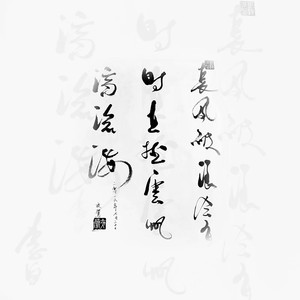 長風破浪會有
時直掛雲帆
濟滄海